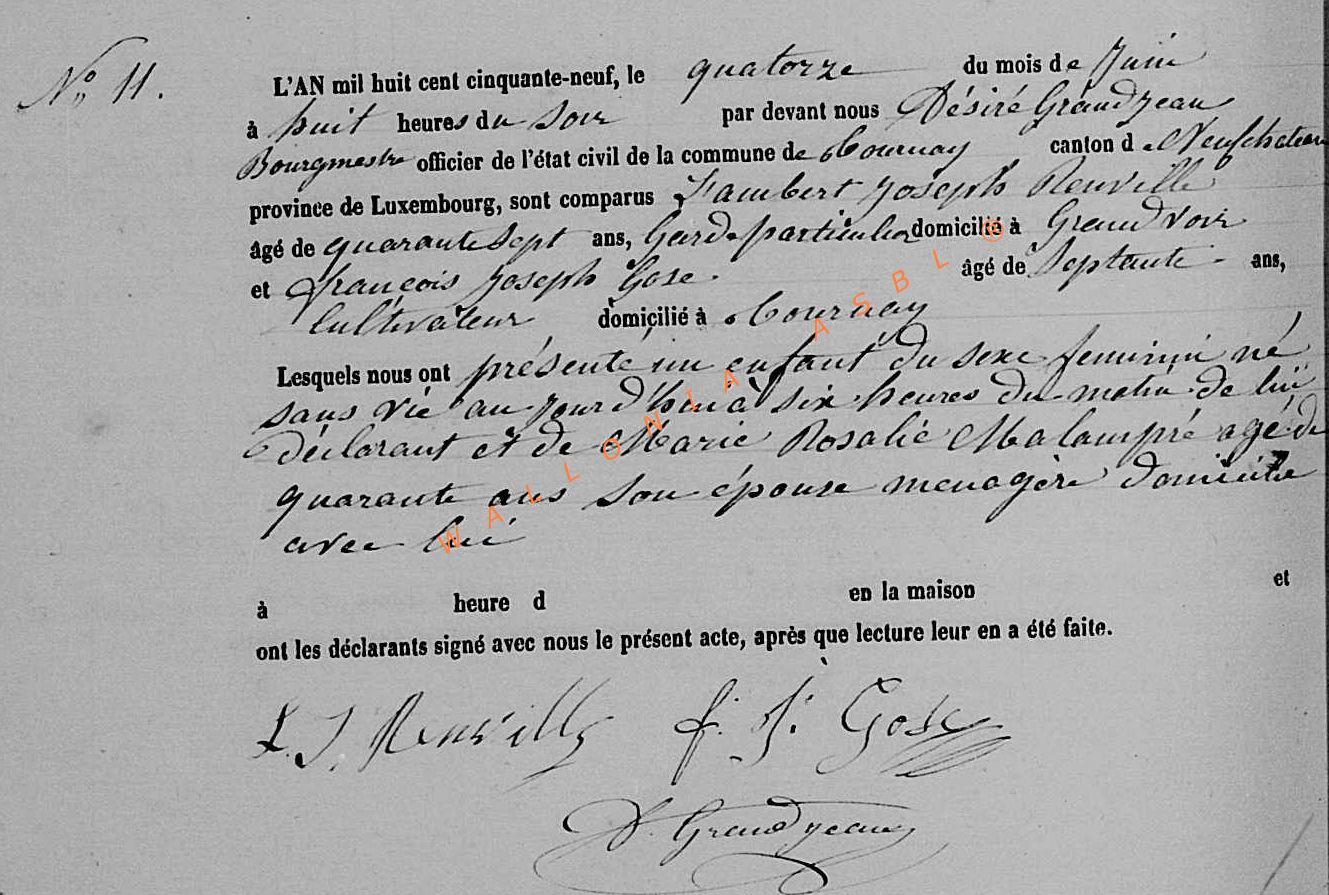 N° 11.
L'AN mil huit cent cinquante-neuf, le quatorze du mois de Juin
à huit heures du Soir par devant nous Désiré Grandjean
Bourgmestre officier de l'état civil de la commune de Tournay canton de Neufchateau
province de Luxembourg, sont comparus Lambert Joseph Renville
âgé de quarante Sept ans, Garde particulier domicilié à Grandvoir
et françois Joseph Gose. âgé de Septante ans,
Cultivateur domicilié à Tournay
Lesquels nous ont présenté un enfant du sexe feminin né
sans vie au jourd'hui à six heures du matin de lui
déclarant et de Marie Rosalie Malampré agé de
quarante ans son épouse menagère domicilié
avec lui
à heure d en la maison et
ont les déclarants signé avec nous le présent acte, après que lecture leur en a été faite.
L. J. Renville f. J. Gose
D. Grandjean
WALLONIA ASBL ©